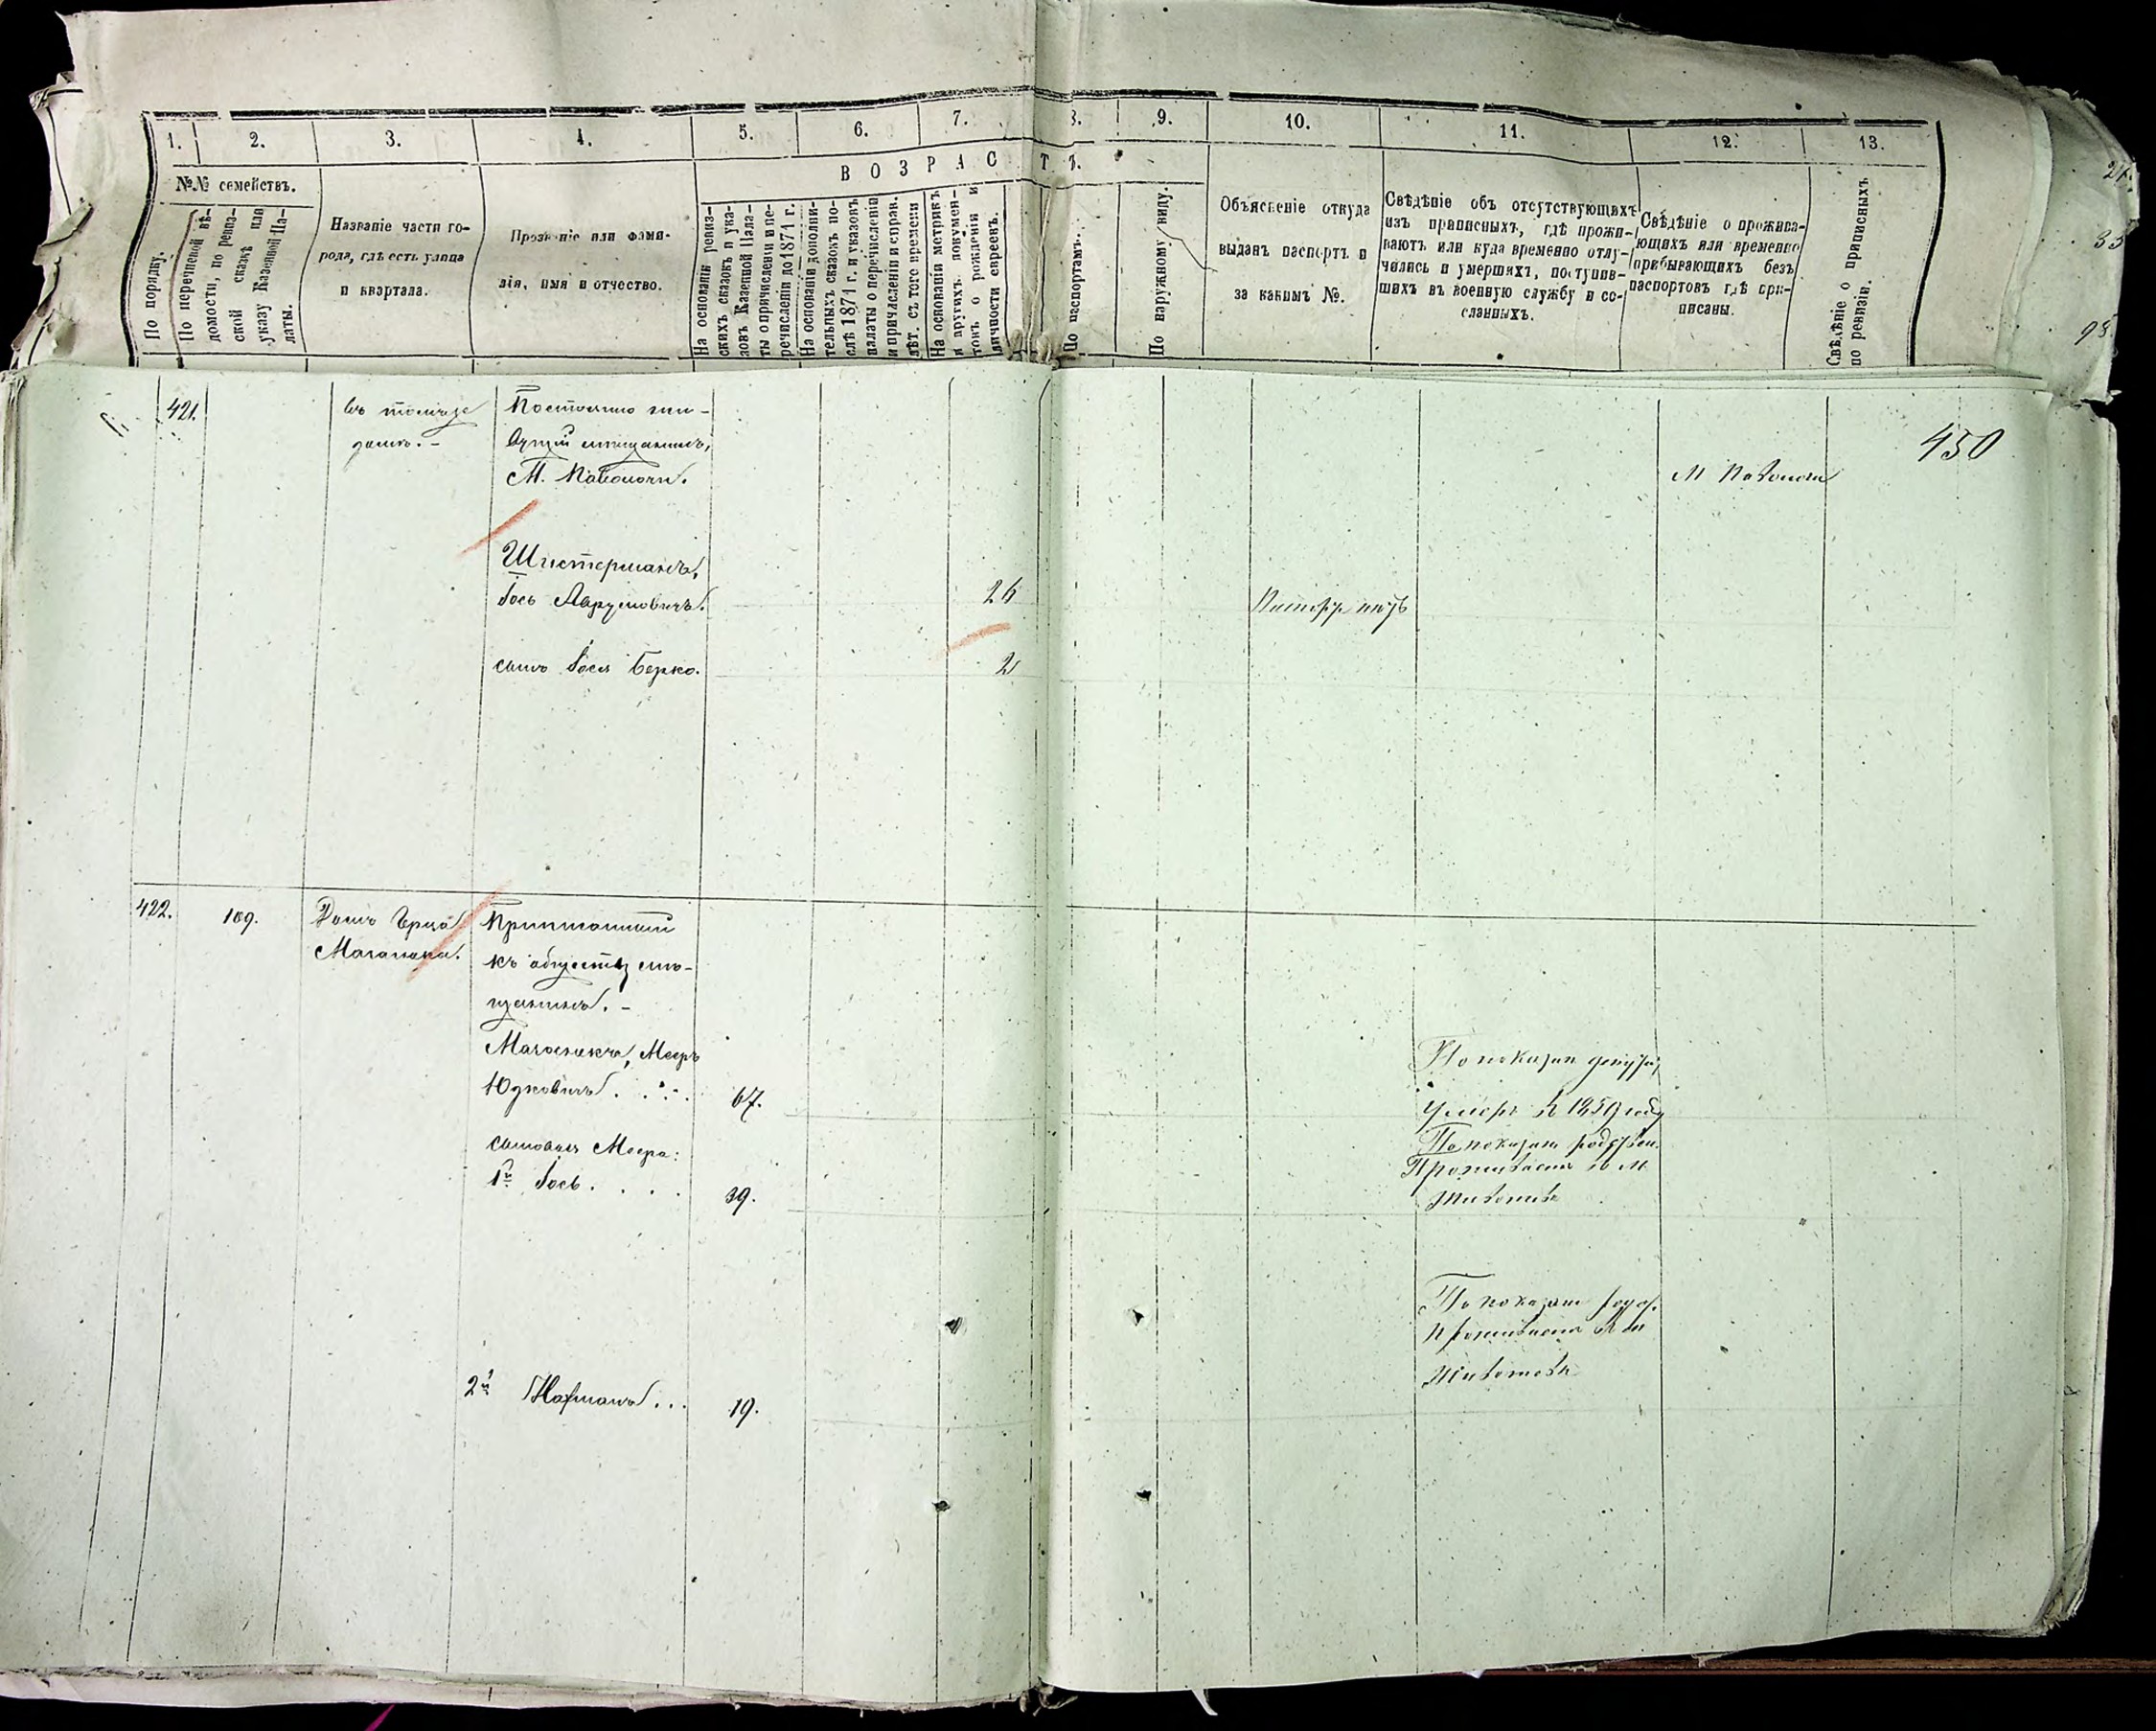 1. 2. 3. 4. 5. 6. 7. 8. 9. 10. 11. 12. 13.
№№ семействъ.
В О З Р А С Т Ъ.
По порядку.
По перечневой вѣ-
домости, по ревиз-
ской сказкѣ или
указу Казенной Па-
латы.
Названіе части го-
рода, гдѣ есть улица
и квартала.
Прозваніе или фами-
лія, имя и отчество.
На основаніи ревиз-
скихъ сказокъ и ука-
зовъ Казенной Пала-
ты о причисленіи и пе-
речисленіи до 1871 г.
На основаніи дополни-
тельныхъ сказокъ по-
слѣ 1871 г. и указовъ
палаты о перечисленіи
и причисленіи и справ.
лѣт. съ того времени
На основаніи метрикъ
и другихъ докумен-
товъ о рожденіи и
личности евреевъ.
По паспортамъ.
По наружному виду.
Объясненіе откуда
выданъ паспортъ и
за какимъ №.
Свѣдѣніе объ отсутствующихъ
изъ приписныхъ, гдѣ прожи-
ваютъ или куда временно отлу-
чились и умершихъ, поступив-
шихъ въ военную службу и со-
сланныхъ.
Свѣдѣніе о прожива-
ющихъ или временно
прибывающихъ безъ
паспортовъ гдѣ при-
писаны.
Свѣдѣніе о приписныхъ
по ревизіи.
450
421.
въ томъ же
домѣ. –
Постоянно жи-
вущій мѣщанинъ,
Шистерманъ,
Іось Аврумовичъ. 26
сынъ Іося Берко. 2
422. 109.
Домъ Ерша
Маганика.
Приписанный
къ обществу мѣ-
щанинъ. –
Юдковичъ . . . 67.
умеръ въ 1859 году
сыновья Меера:
1й Іось . . . . 39.
Проживаетъ въ м.
Животовѣ
проживаетъ въ м
Животовѣ
2й . . . 19.